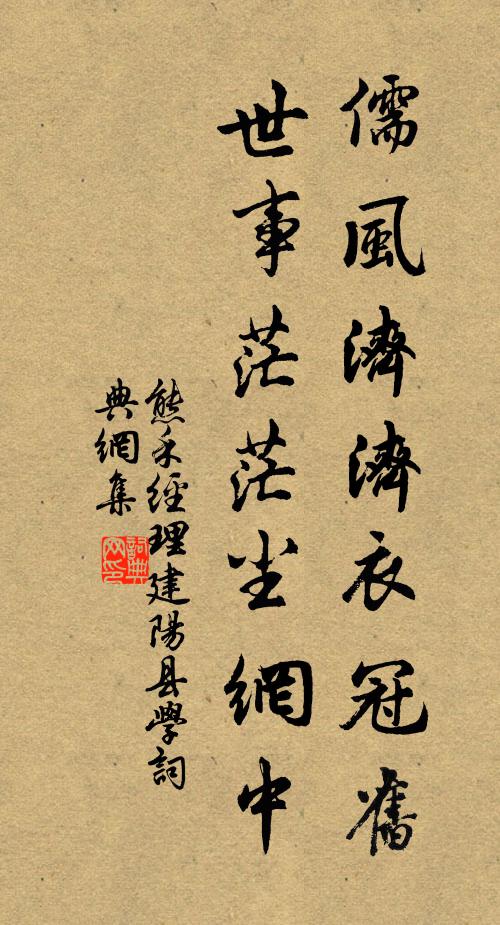 儒風濟濟衣冠舊
世事茫茫尘網中
熊禾經理建陽县學詞
典網集
詞典網印